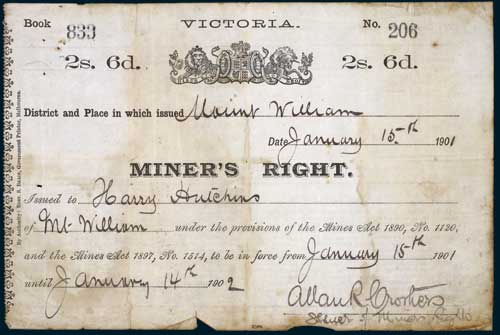 Book VICTORIA. No.
833 206
2s. 6d. 2s. 6d.
District and Place in which issued Mount William
Date January 15th 1901
MINER'S RIGHT.
Issued to Harry Hutchins
of Mt William under the provisions of the Mines Act 1890, No. 1120,
and the Mines Act 1897, No. 1514, to be in force from January 15th 1901
until January 14th 1902
Allan R Crothers
Issuer of Miners Rights
By Authority: Robt. S. Brain, Government Printer, Melbourne.